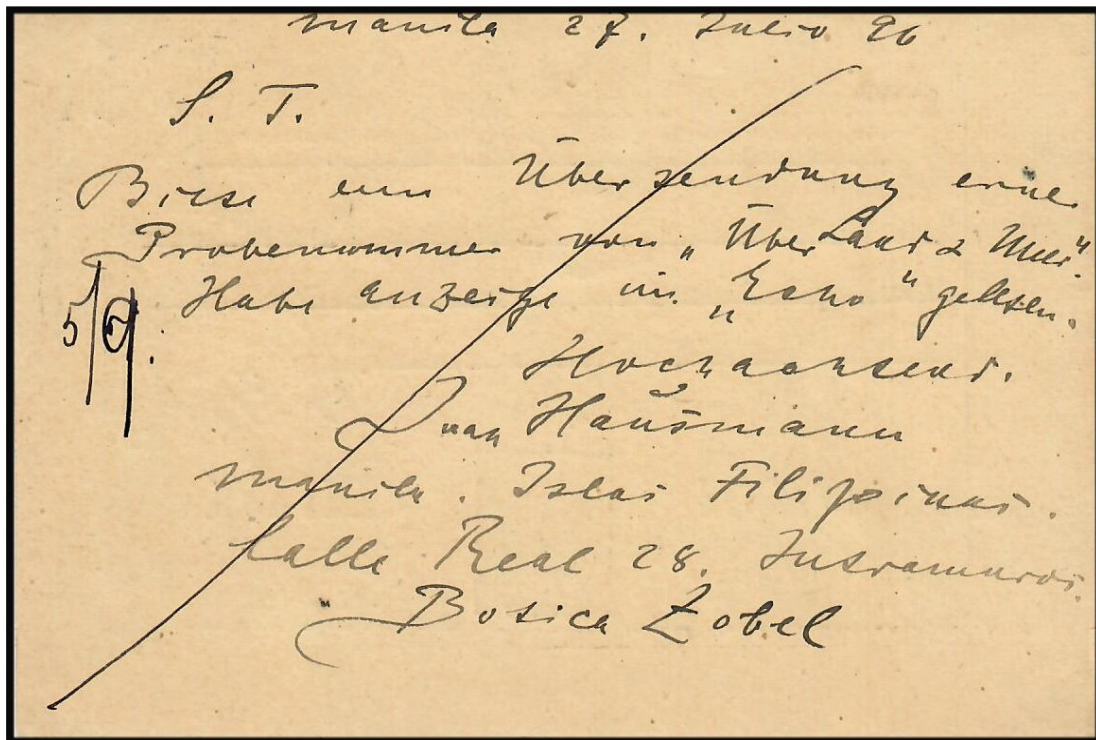 Manila 27. Julio 96
S. T.
Bitte um Übersendung einer
Probenummer von „Über Land & Meer“.
5/9. Habe Anzeige im „Echo“ gelesen.
Hochachtend.
Juan Hausmann
Manila. Islas Filipinas.
Calle Real 28. Intramuros.
Botica Zobel